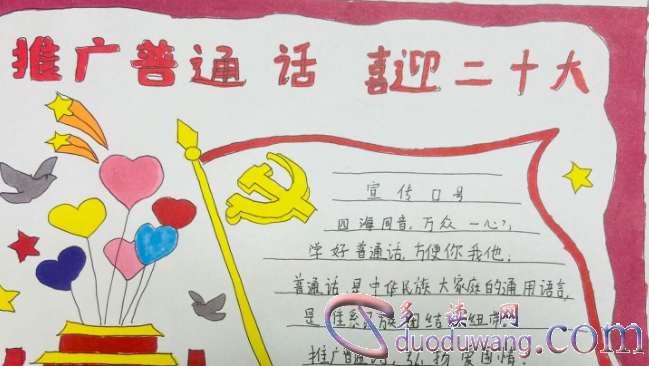 推广普通话 喜迎二十大
宣传口号
四海同音,万众一心?;
学好普通话,方便你我他;
普通话是中华民族大家庭的通用语言,
是维系民族团结的纽带
推广普通话,弘扬爱国情.
多读网
duoduwang.com